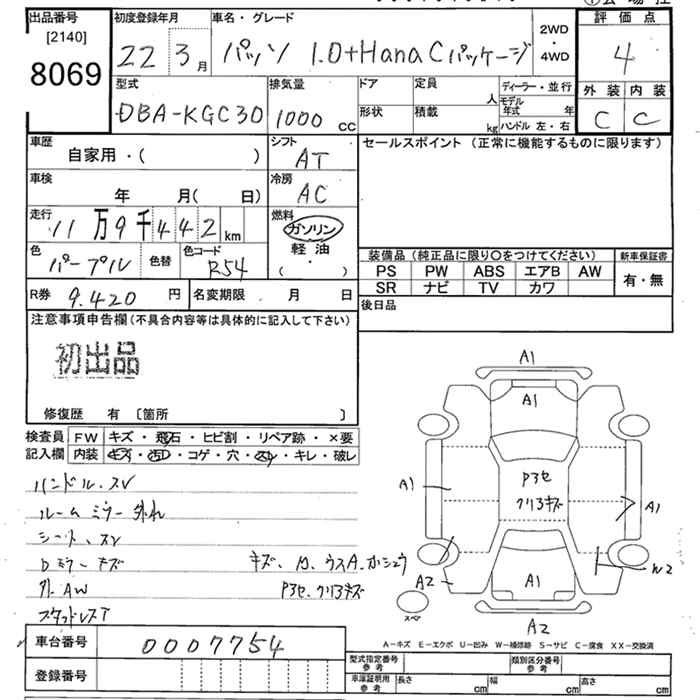 出品番号
[2140]
8069
初度登録年月
22 3月
車名・グレード
パッソ 1.0+Hana Cパッケージ
2WD
・
4WD
評価点
4
外装 内装
C C
型式
DBA-KGC30
排気量
1000 cc
ドア
形状
定員
人
積載
kg
ディーラー・並行
モデル年式 年
ハンドル 左・右
車歴
自家用・( )
シフト
AT
セールスポイント (正常に機能するものに限ります)
車検
年 月( 日)
冷房
AC
走行
11万9千442km
燃料
ガソリン
・
軽油
( ・ )
色
パープル
色替
色コード
R54
装備品 (純正品に限り〇をつけてください)
新車保証書
PS PW ABS エアB AW
SR ナビ TV カワ
有・無
R券 9.420円
名変期限 月 日
後日品
注意事項申告欄(不具合内容等は具体的に記入して下さい)
初出品
修復歴 有 [箇所 ]
検査員
記入欄
FW キズ・飛石・ヒビ割・リペア跡・×要
内装 キズ・汚レ・コゲ・穴・スレ・キレ・破レ
ハンドル.スレ
ルームミラー外れ
シート.スレ
Dミラーキズ
外.AW
スタッドレスT
P3セ.クリア キズ
A1
A1
P3セ
クリアキズ
A1
A1
A2
W2
A1
スペア
A2
A-キズ E-エクボ U-凹み W-補修跡 S-サビ C-腐食 XX-交換済
車台番号
0007754
登録番号
型式指定番号
参考
類別区分番号
参考
車庫証明用
参考
長さ cm
幅 cm
高さ cm